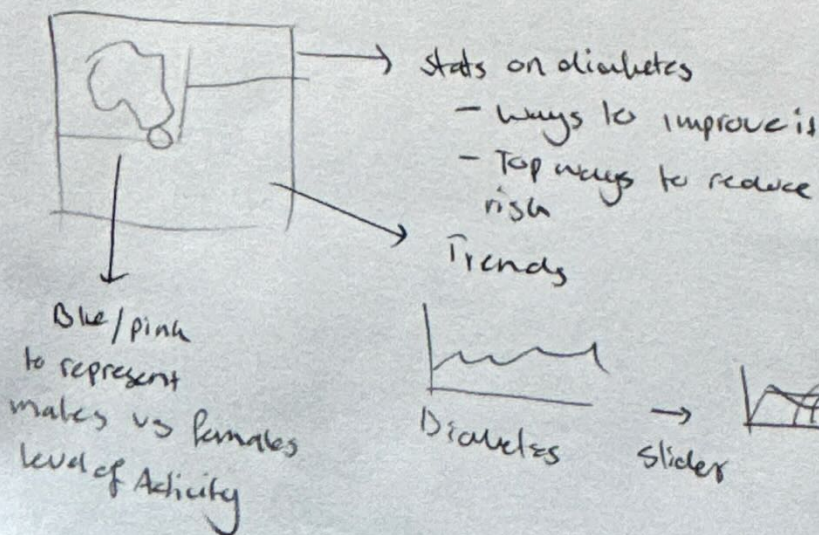 stats on diabetes
- ways to improve it
- Top ways to reduce
risk
Trends
Blue/pink
to represent
males vs females
level of Activity
Diabetes
→ slider